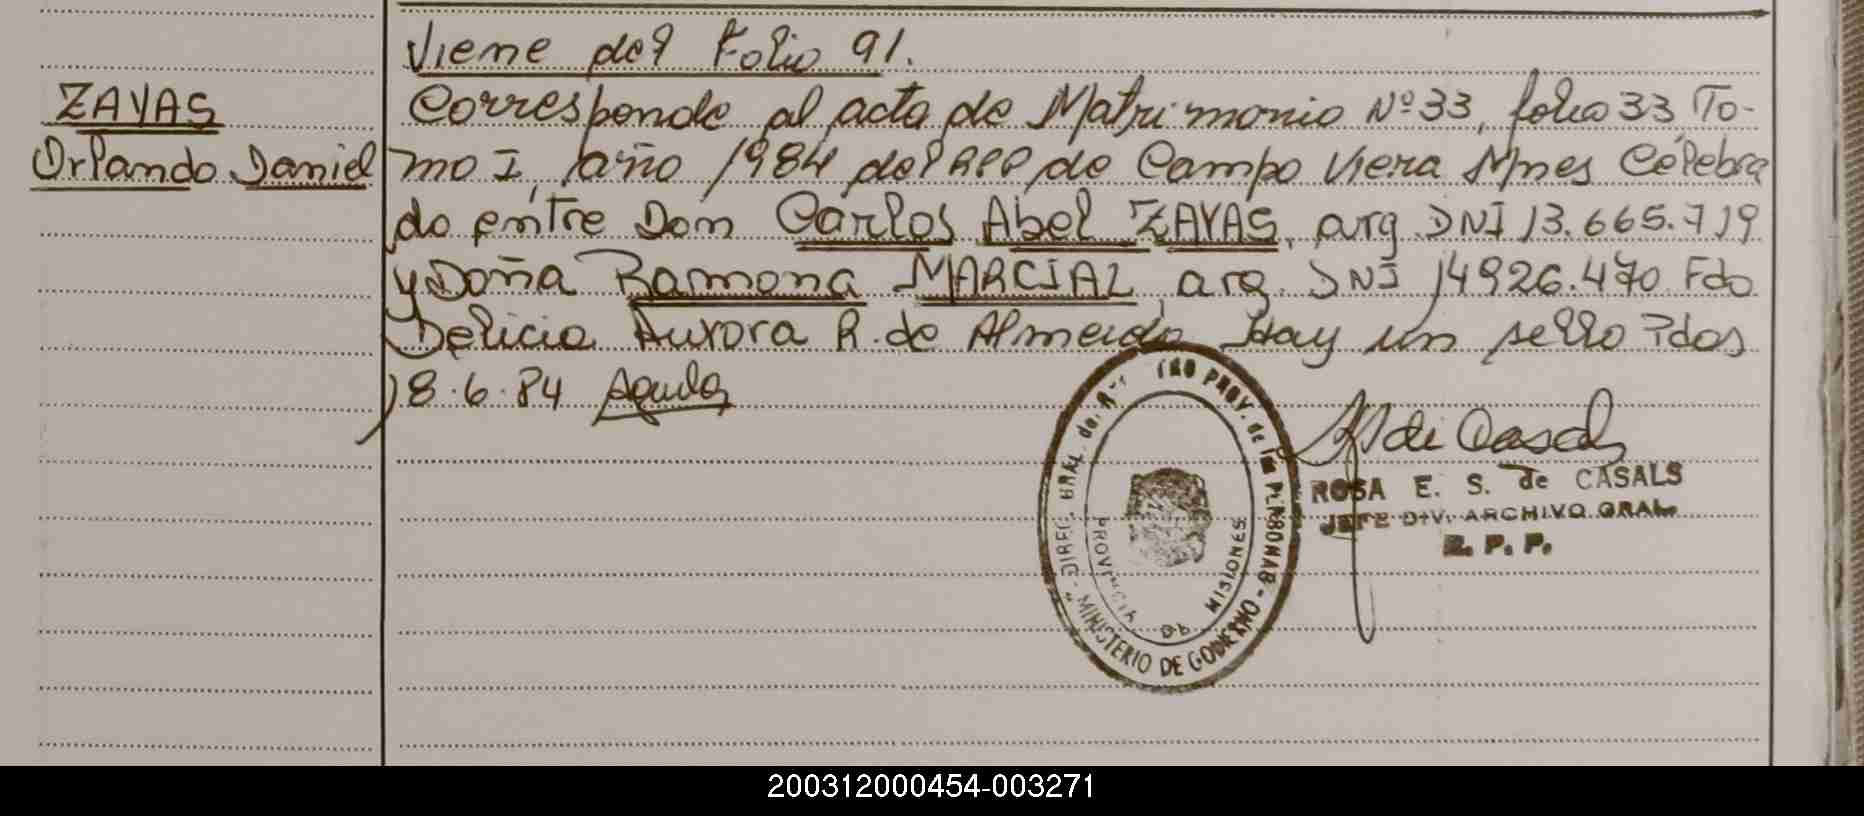 Viene del Folio 91.
ZAYAS
Orlando Daniel
Corresponde al acta de Matrimonio Nº 33, folio 33 To-
mo I, año 1984 del RPP de Campo Viera Mnes Celebra
do entre Don Carlos Abel ZAYAS, arg. DNI 13.665.719
y Doña Ramona MARCIAL, arg. DNI 14926.470 Fdo
Delicia Aurora R. de Almeida Hay un sello Pdas
18.6.84
de Casals
ROSA E. S. de CASALS
JEFE DIV. ARCHIVO GRAL.
R. P. P.
DIREC. GRAL. del PROV. de las PERSONAS - MINISTERIO DE GOBIERNO -
PROVINCIA DE MISIONES
200312000454-003271